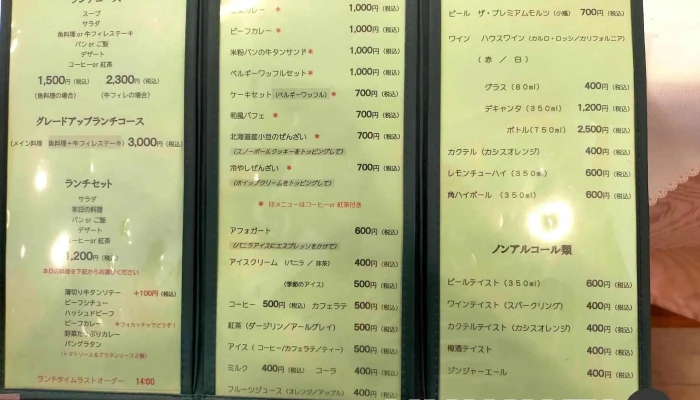 ランチコース
スープ
サラダ
魚料理 or 牛フィレステーキ
パン or ご飯
デザート
コーヒーor 紅茶
1,500円(税込) 2,300円(税込)
(魚料理の場合) (牛フィレの場合)
グレードアップランチコース
(メイン料理 魚料理+牛フィレステーキ) 3,000円(税込)
ランチセット
サラダ
本日の料理
パン or ご飯
デザート
コーヒーor 紅茶
1,200円(税込)
本日の料理を下記からお選びください
薄切り牛タンソテー +100円(税込)
ビーフシチュー
ハッシュドビーフ
ビーフカレー *フォカッチャでどうぞ!
野菜たっぷりカレー
パングラタン
(トマトソース&グラタンソース2種)
ランチタイムラストオーダー 14:00
カレー * 1,000円(税込)
ビーフカレー * 1,000円(税込)
米粉パンの牛タンサンド* 1,000円(税込)
ベルギーワッフルセット* 1,000円(税込)
ケーキセット(ベルギーワッフル)* 700円(税込)
和風パフェ * 700円(税込)
北海道産小豆のぜんざい * 700円(税込)
(スノーボールクッキーをトッピングして)
冷やしぜんざい * 700円(税込)
(ホイップクリームをトッピングして)
* 印メニューはコーヒーor 紅茶付き
アフォガート 600円(税込)
(バニラアイスにエスプレッソをかけて)
アイスクリーム (バニラ / 抹茶) 400円(税込)
(季節のアイス) 500円(税込)
コーヒー 500円(税込) カフェラテ 500円(税込)
紅茶(ダージリン/アールグレイ) 500円(税込)
アイス(コーヒー/カフェラテ/ティー) 500円(税込)
ミルク 400円(税込) コーラ 400円(税込)
フルーツジュース(オレンジ/アップル) 400円(税込)
ビール ザ・プレミアムモルツ(小瓶) 700円(税込)
ワイン ハウスワイン(カルロ・ロッシ/カリフォルニア)
(赤 / 白)
グラス(80ml) 400円(税込)
デキャンタ(350ml) 1,200円(税込)
ボトル(750ml) 2,500円(税込)
カクテル(カシスオレンジ) 400円(税込)
レモンチューハイ(350ml) 600円(税込)
角ハイボール (350ml) 600円(税込)
ノンアルコール類
ビールテイスト(350ml) 600円(税込)
ワインテイスト(スパークリング) 400円(税込)
カクテルテイスト(カシスオレンジ) 400円(税込)
梅酒テイスト 400円(税込)
ジンジャーエール 400円(税込)